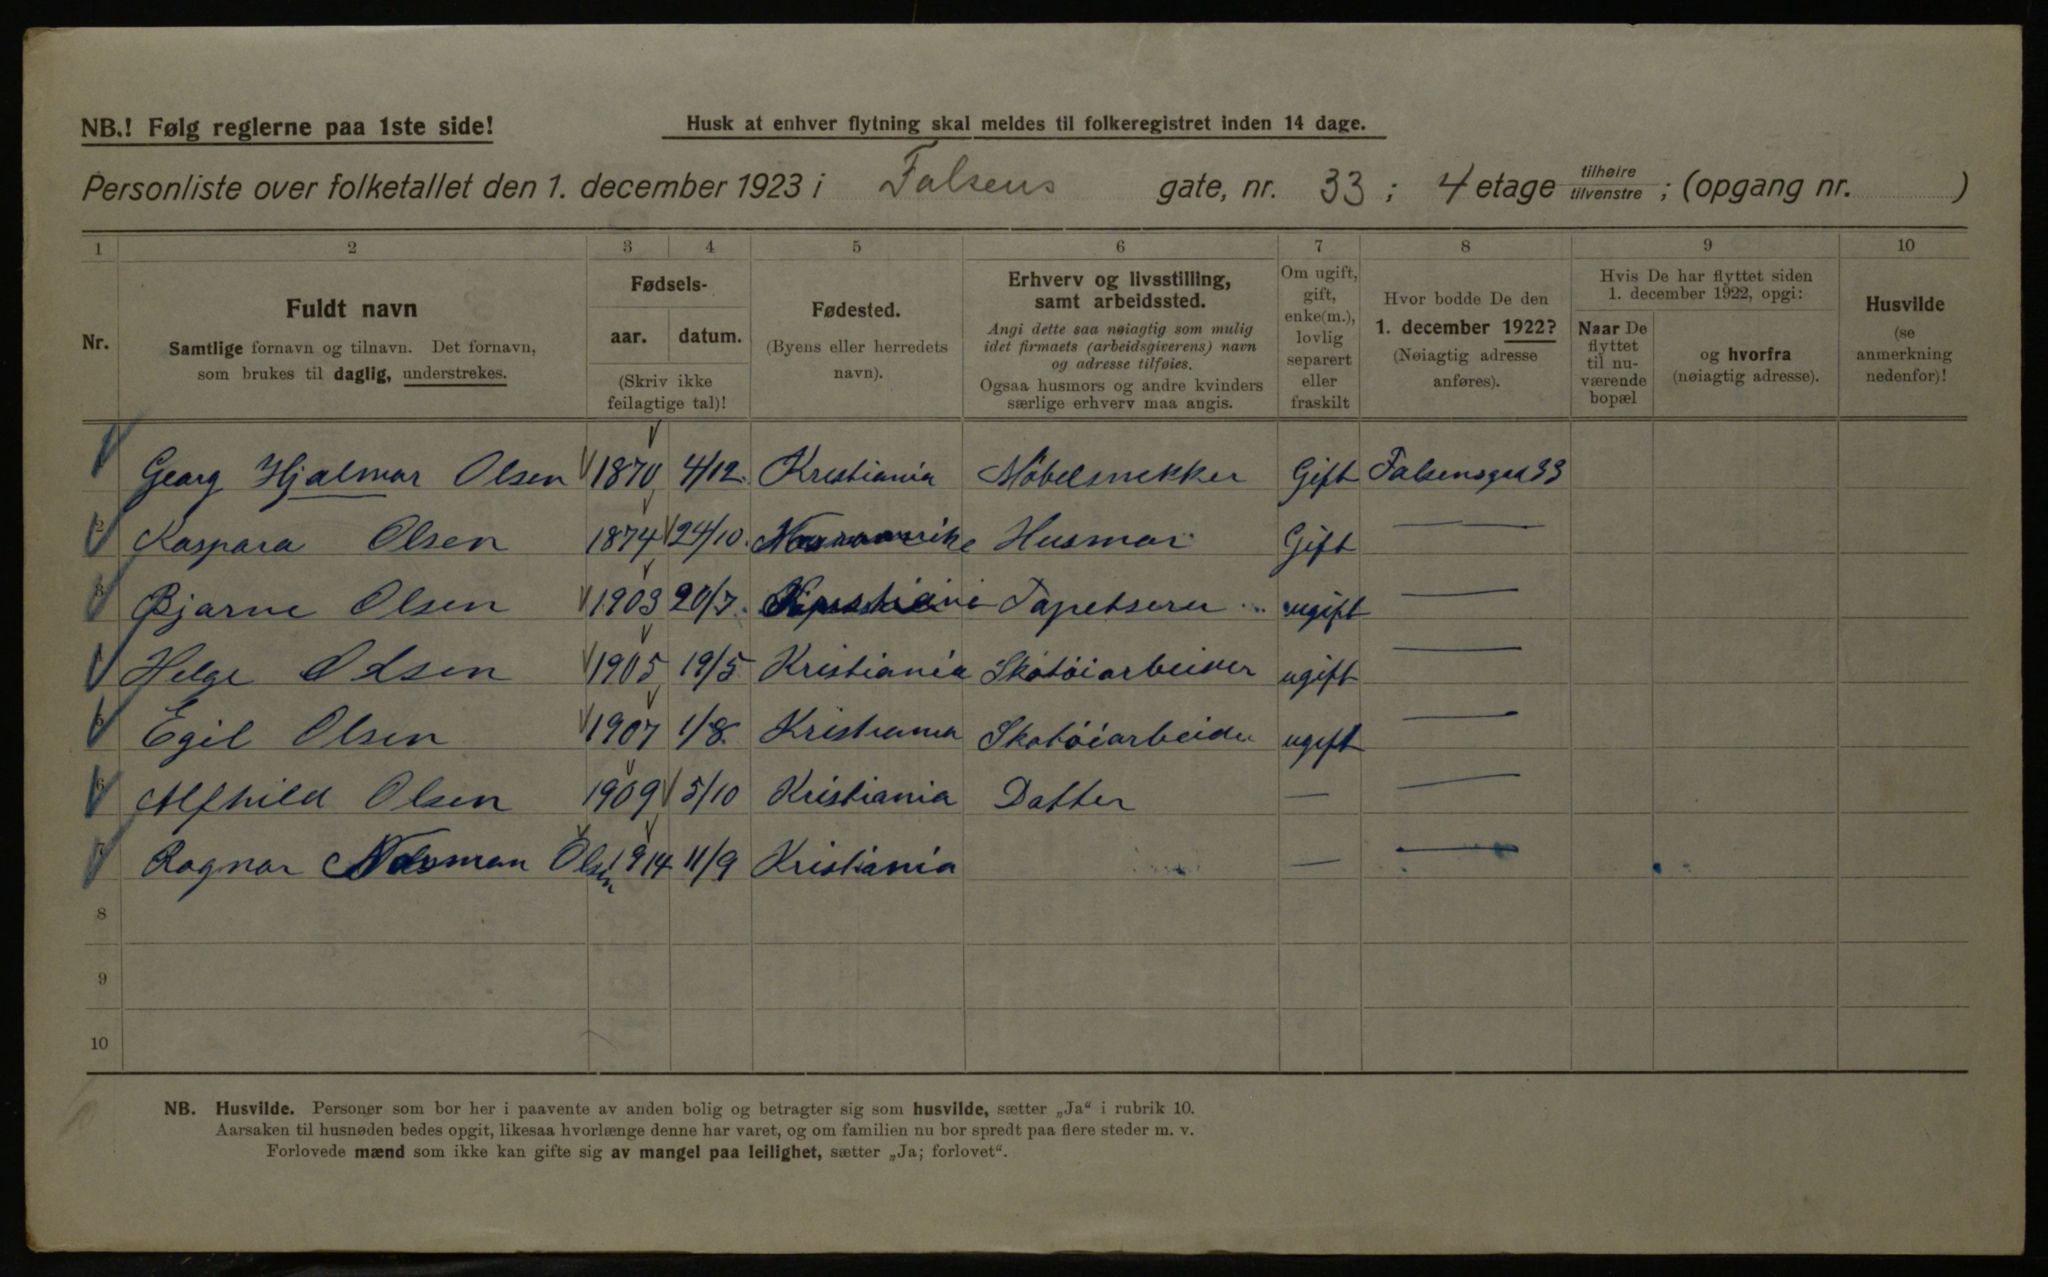 NB.! Følg reglerne paa 1ste side!
Husk at enhver flytning skal meldes til folkeregistret inden 14 dage.
Personliste over folketallet den 1. december 1923 i Falsens gate, nr. 33; 4 etage tilhøire tilvenstre; (opgang nr. )
1 2 3 4 5 6 7 8 9 10
Nr.
Fuldt navn
Samtlige fornavn og tilnavn. Det fornavn,
som brukes til daglig, understrekes.
Fødsels-
aar. datum.
(Skriv ikke
feilagtige tal)!
Fødested.
(Byens eller herredets
navn).
Erhverv og livsstilling,
samt arbeidssted.
Angi dette saa nøiagtig som mulig
idet firmaets (arbeidsgiverens) navn
og adresse tilføies.
Ogsaa husmors og andre kvinders
særlige erhverv maa angis.
Om ugift,
gift,
enke(m.),
lovlig
separert
eller
fraskilt
Hvor bodde De den
1. december 1922?
(Nøiagtig adresse
anføres).
Hvis De har flyttet siden
1. december 1922, opgi:
Naar De
flyttet
til nu-
værende
bopæl
og hvorfra
(nøiagtig adresse).
Husvilde
(se
anmerkning
nedenfor)!
Georg Hjalmar Olsen 1870 4/12. Kristiania Möbelsnekker Gift Falsensgad 33
2 Kaspara Olsen 1874 24/10. Husmor Gift —
3 Bjarne Olsen 1903 20/7. Tapetserer ugift —
Helge Olsen 1905 19/5 Kristiania Skotöiarbeider ugift —
5 Egil Olsen 1907 1/8. Kristiania Skotöiarbeider ugift —
6 Alfhild Olsen 1909 5/10 Kristiania Datter — —
7 Ragnar Olsen 1914 11/9 Kristiania — —
8
9
10
NB. Husvilde. Personer som bor her i paavente av anden bolig og betragter sig som husvilde, sætter „Ja“ i rubrik 10.
Aarsaken til husnøden bedes opgit, likesaa hvorlænge denne har varet, og om familien nu bor spredt paa flere steder m. v.
Forlovede mænd som ikke kan gifte sig av mangel paa leilighet, sætter „Ja; forlovet“.